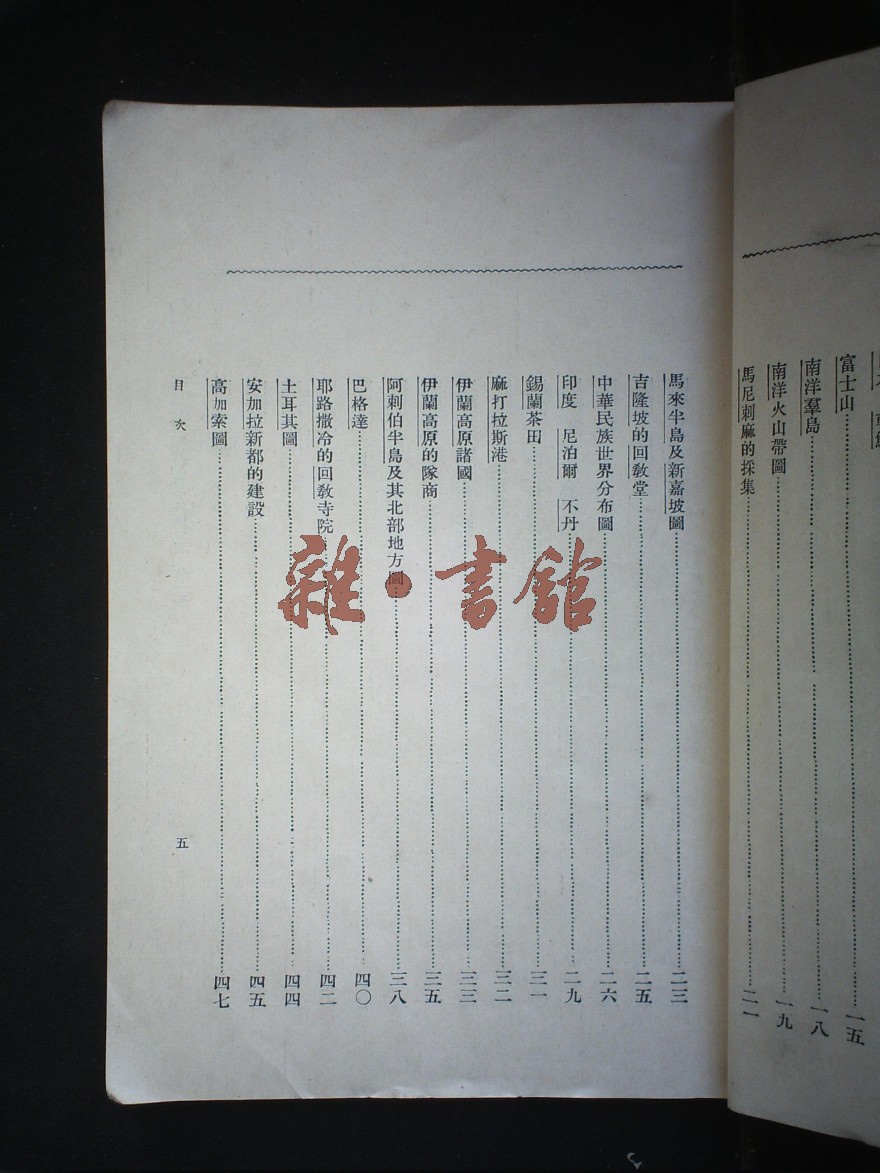 富士山……一五
南洋羣島……一八
南洋火山帶圖……一九
馬尼剌麻的採集……二一
馬來半島及新嘉坡圖……二三
吉隆坡的回敎堂……二五
中華民族世界分布圖……二六
印度 尼泊爾 不丹……二九
錫蘭茶田……三一
麻打拉斯港……三二
伊蘭高原諸國……三三
伊蘭高原的隊商……三五
阿剌伯半島及其北部地方圖……三八
巴格達……四〇
耶路撒冷的回敎寺院……四二
土耳其圖……四四
安加拉新都的建設……四五
高加索圖……四七
目次
五
雜·書館